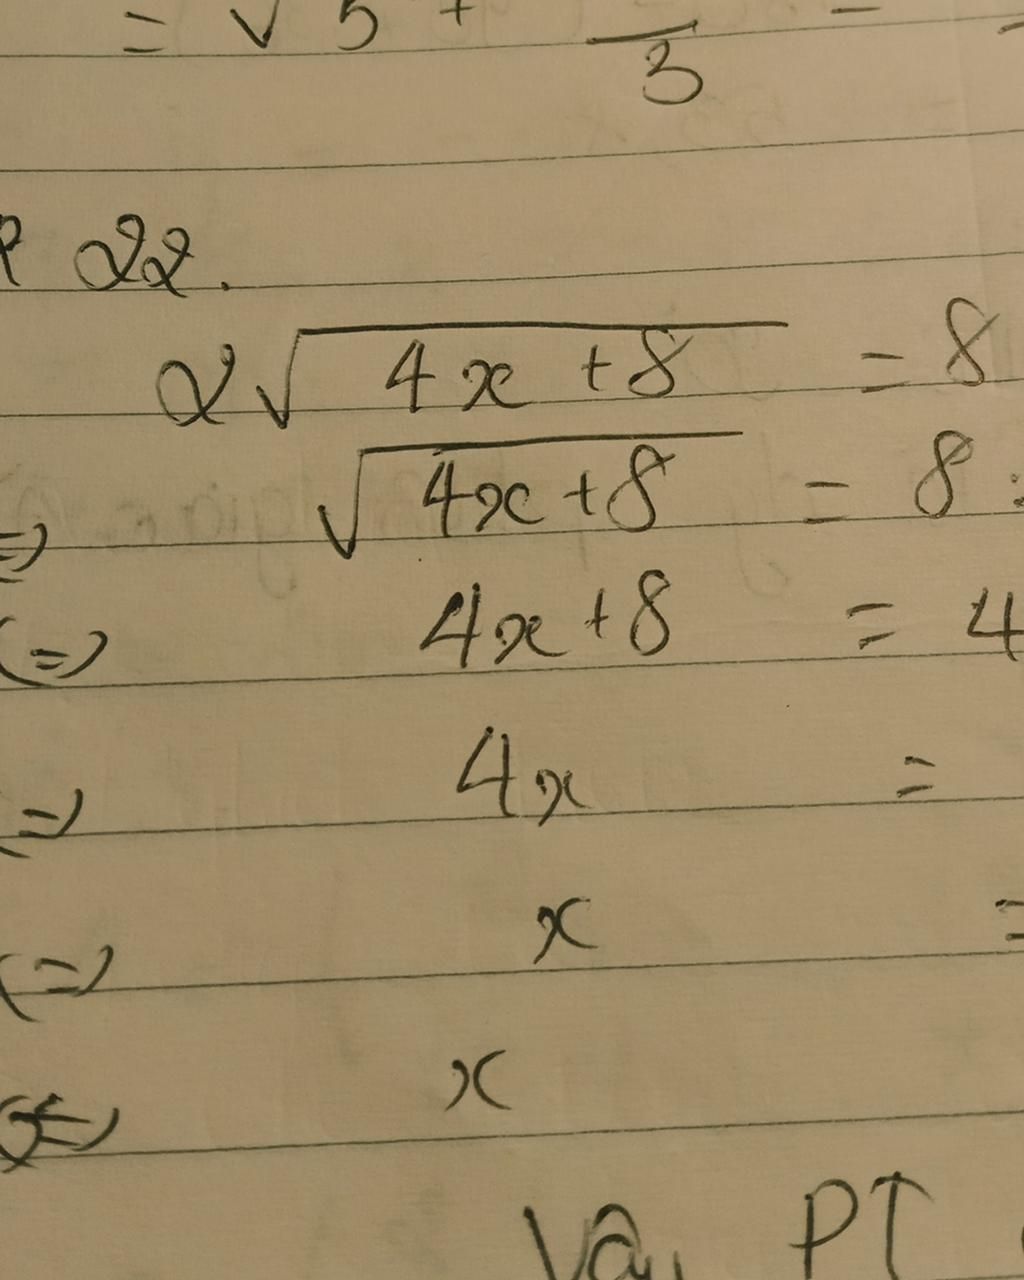 = √5 + /3 -
22.
2√(4x + 8) = 8
√(4x + 8) = 8 :
(=) 4x + 8 = 4
(=) 4x =
(=) x =
(=) x
Vậy PT